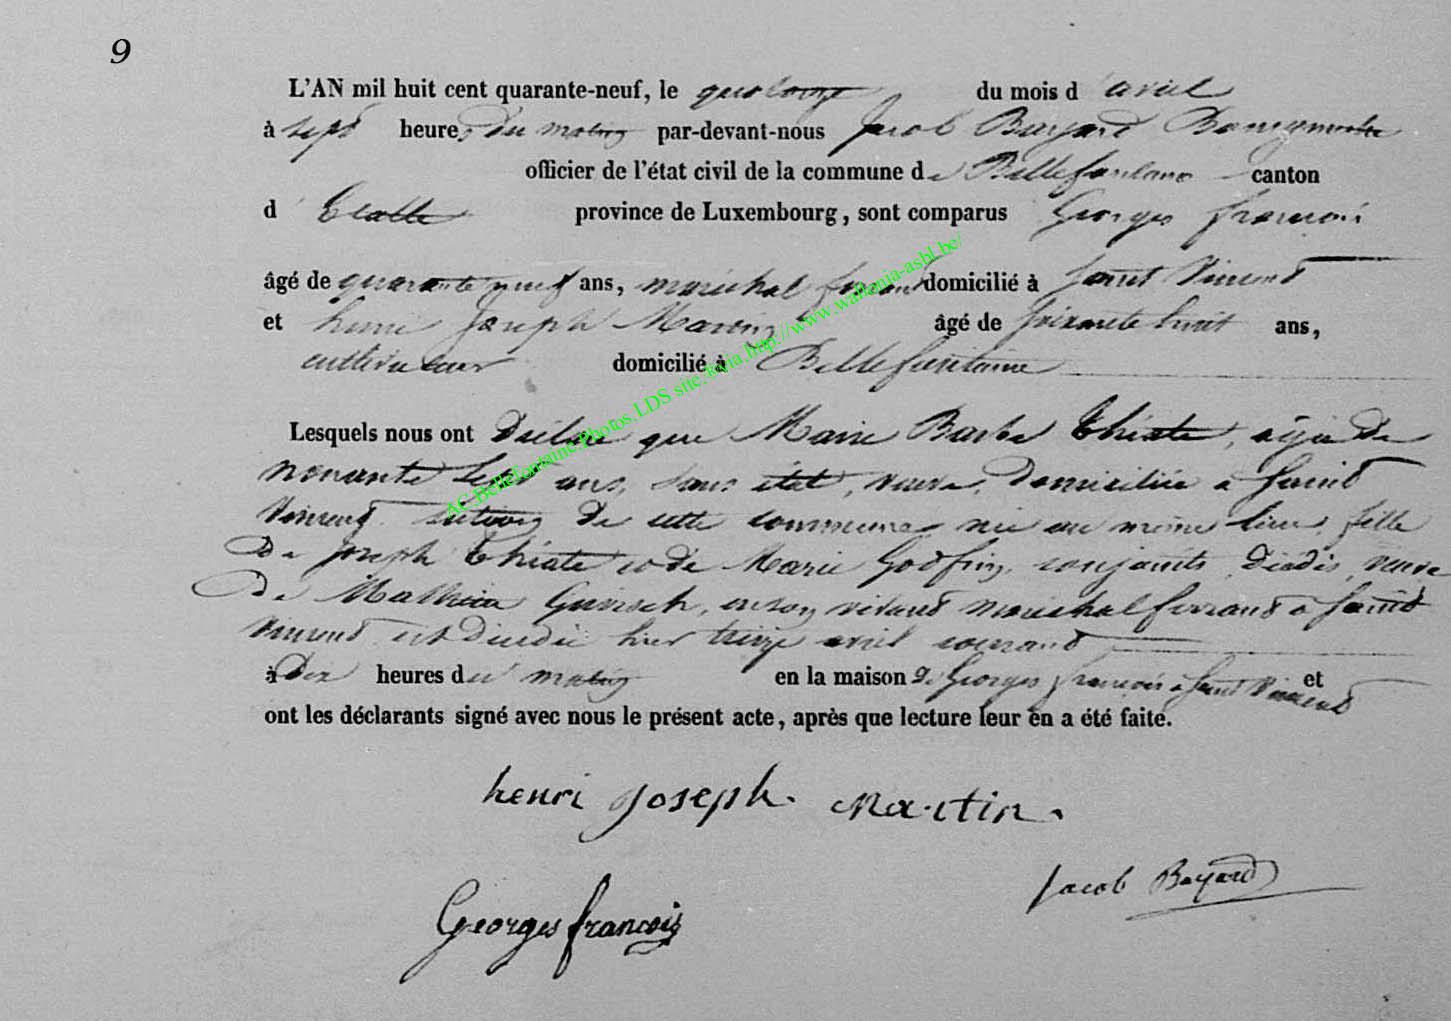 9
L'AN mil huit cent quarante-neuf, le quatorze du mois d'avril
à sept heures du matin par-devant-nous Jacob Bayard Bourgmestre
officier de l'état civil de la commune de Bellefontaine canton
d'Etalle province de Luxembourg, sont comparus Georges françois
âgé de quarante neuf ans, maréchal ferrant domicilié à Saint Vincent
et henri Joseph Martin âgé de soixante huit ans,
cultivateur domicilié à Bellefontaine
Lesquels nous ont déclaré que Marie Barbe Thiate, agée de
nonante sept ans, sans état, veuve, domiciliée à Saint
Vincent section de cette commune née au même lieu, fille
de Joseph Thiate et de Marie Godfrin, conjoints décédés, veuve
de Mathieu en son vivant maréchal ferrant à Saint
Vincent est décédée hier treize avril courant
à dix heures du matin en la maison de Georges françois à Saint Vincent et
ont les déclarants signé avec nous le présent acte, après que lecture leur en a été faite.
henri joseph. Martin.
Jacob Bayard
Georges francois
AC.Bellefontaine.Photos.LDS site.Tavia.http://www.wallonia-asbl.be/